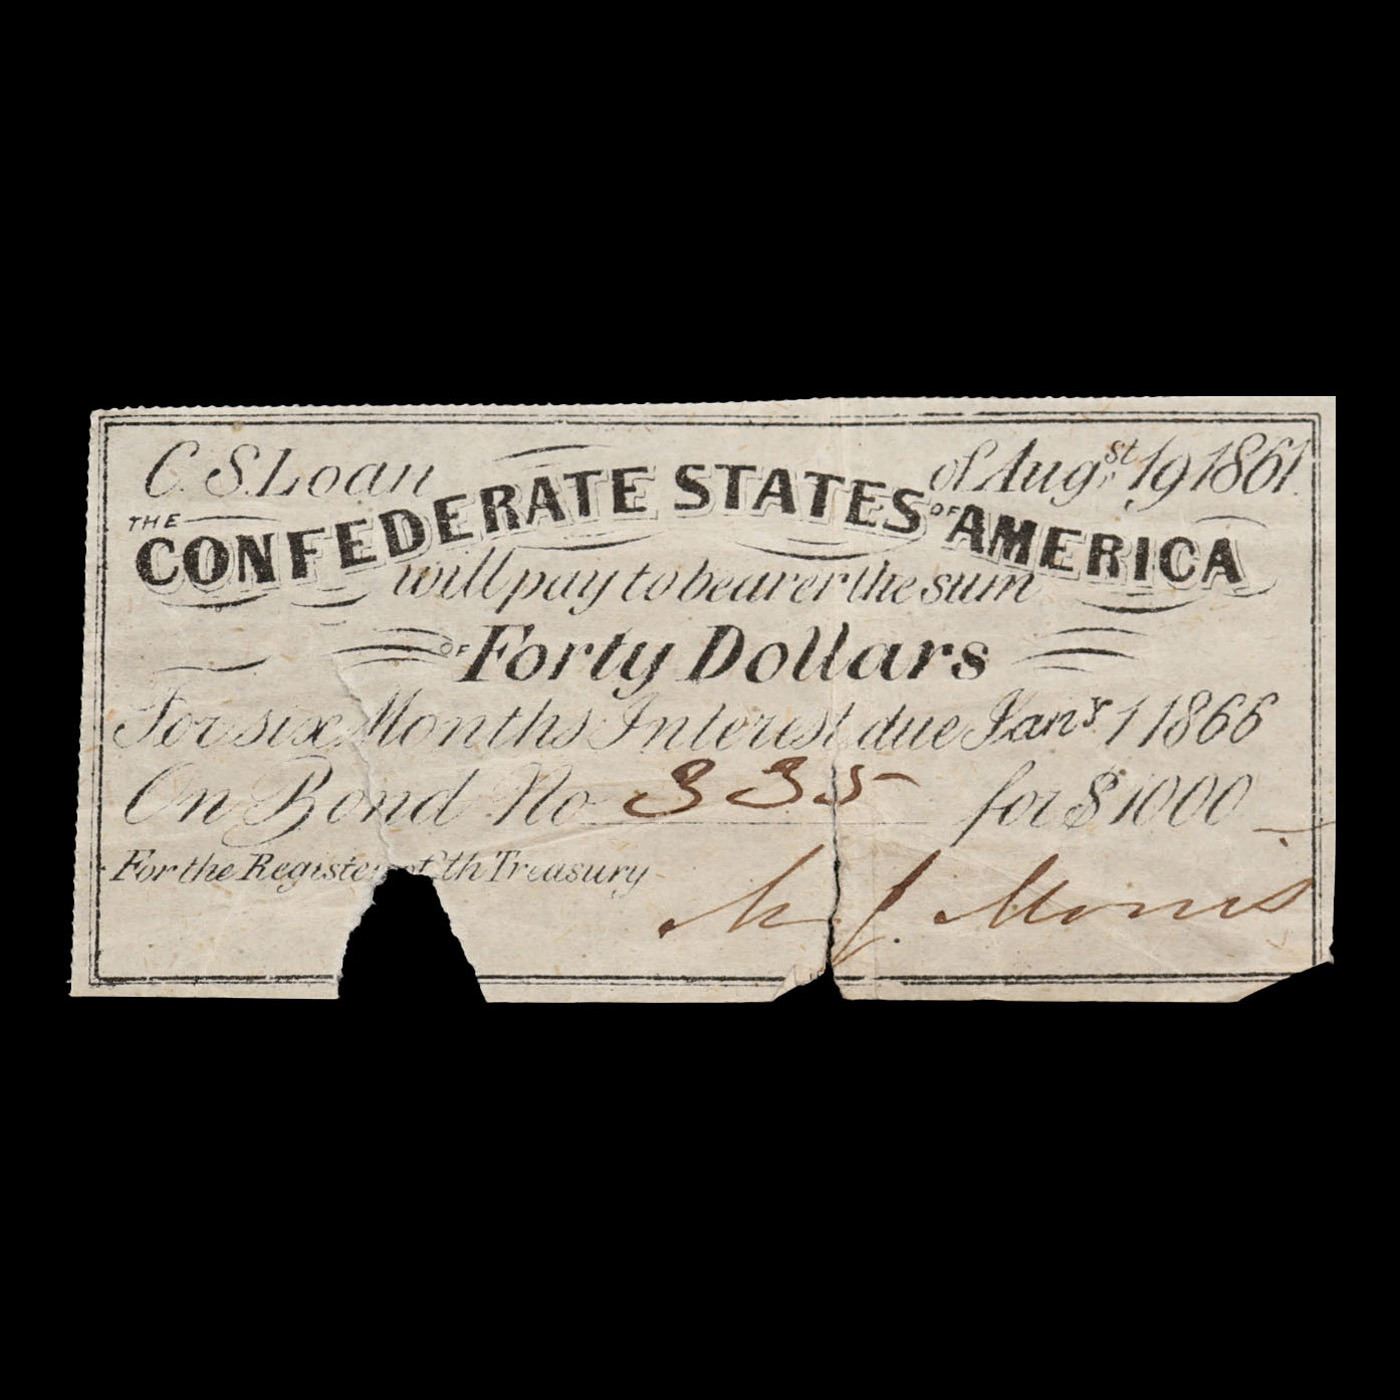 C. S. Loan of Augst. 19 1861.
THE CONFEDERATE STATES OF AMERICA
will pay to bearer the sum
OF Forty Dollars
For six Months Interest due Janr 1 1866
On Bond No 335 for $1000
For the Register of th Treasury
J. Morris